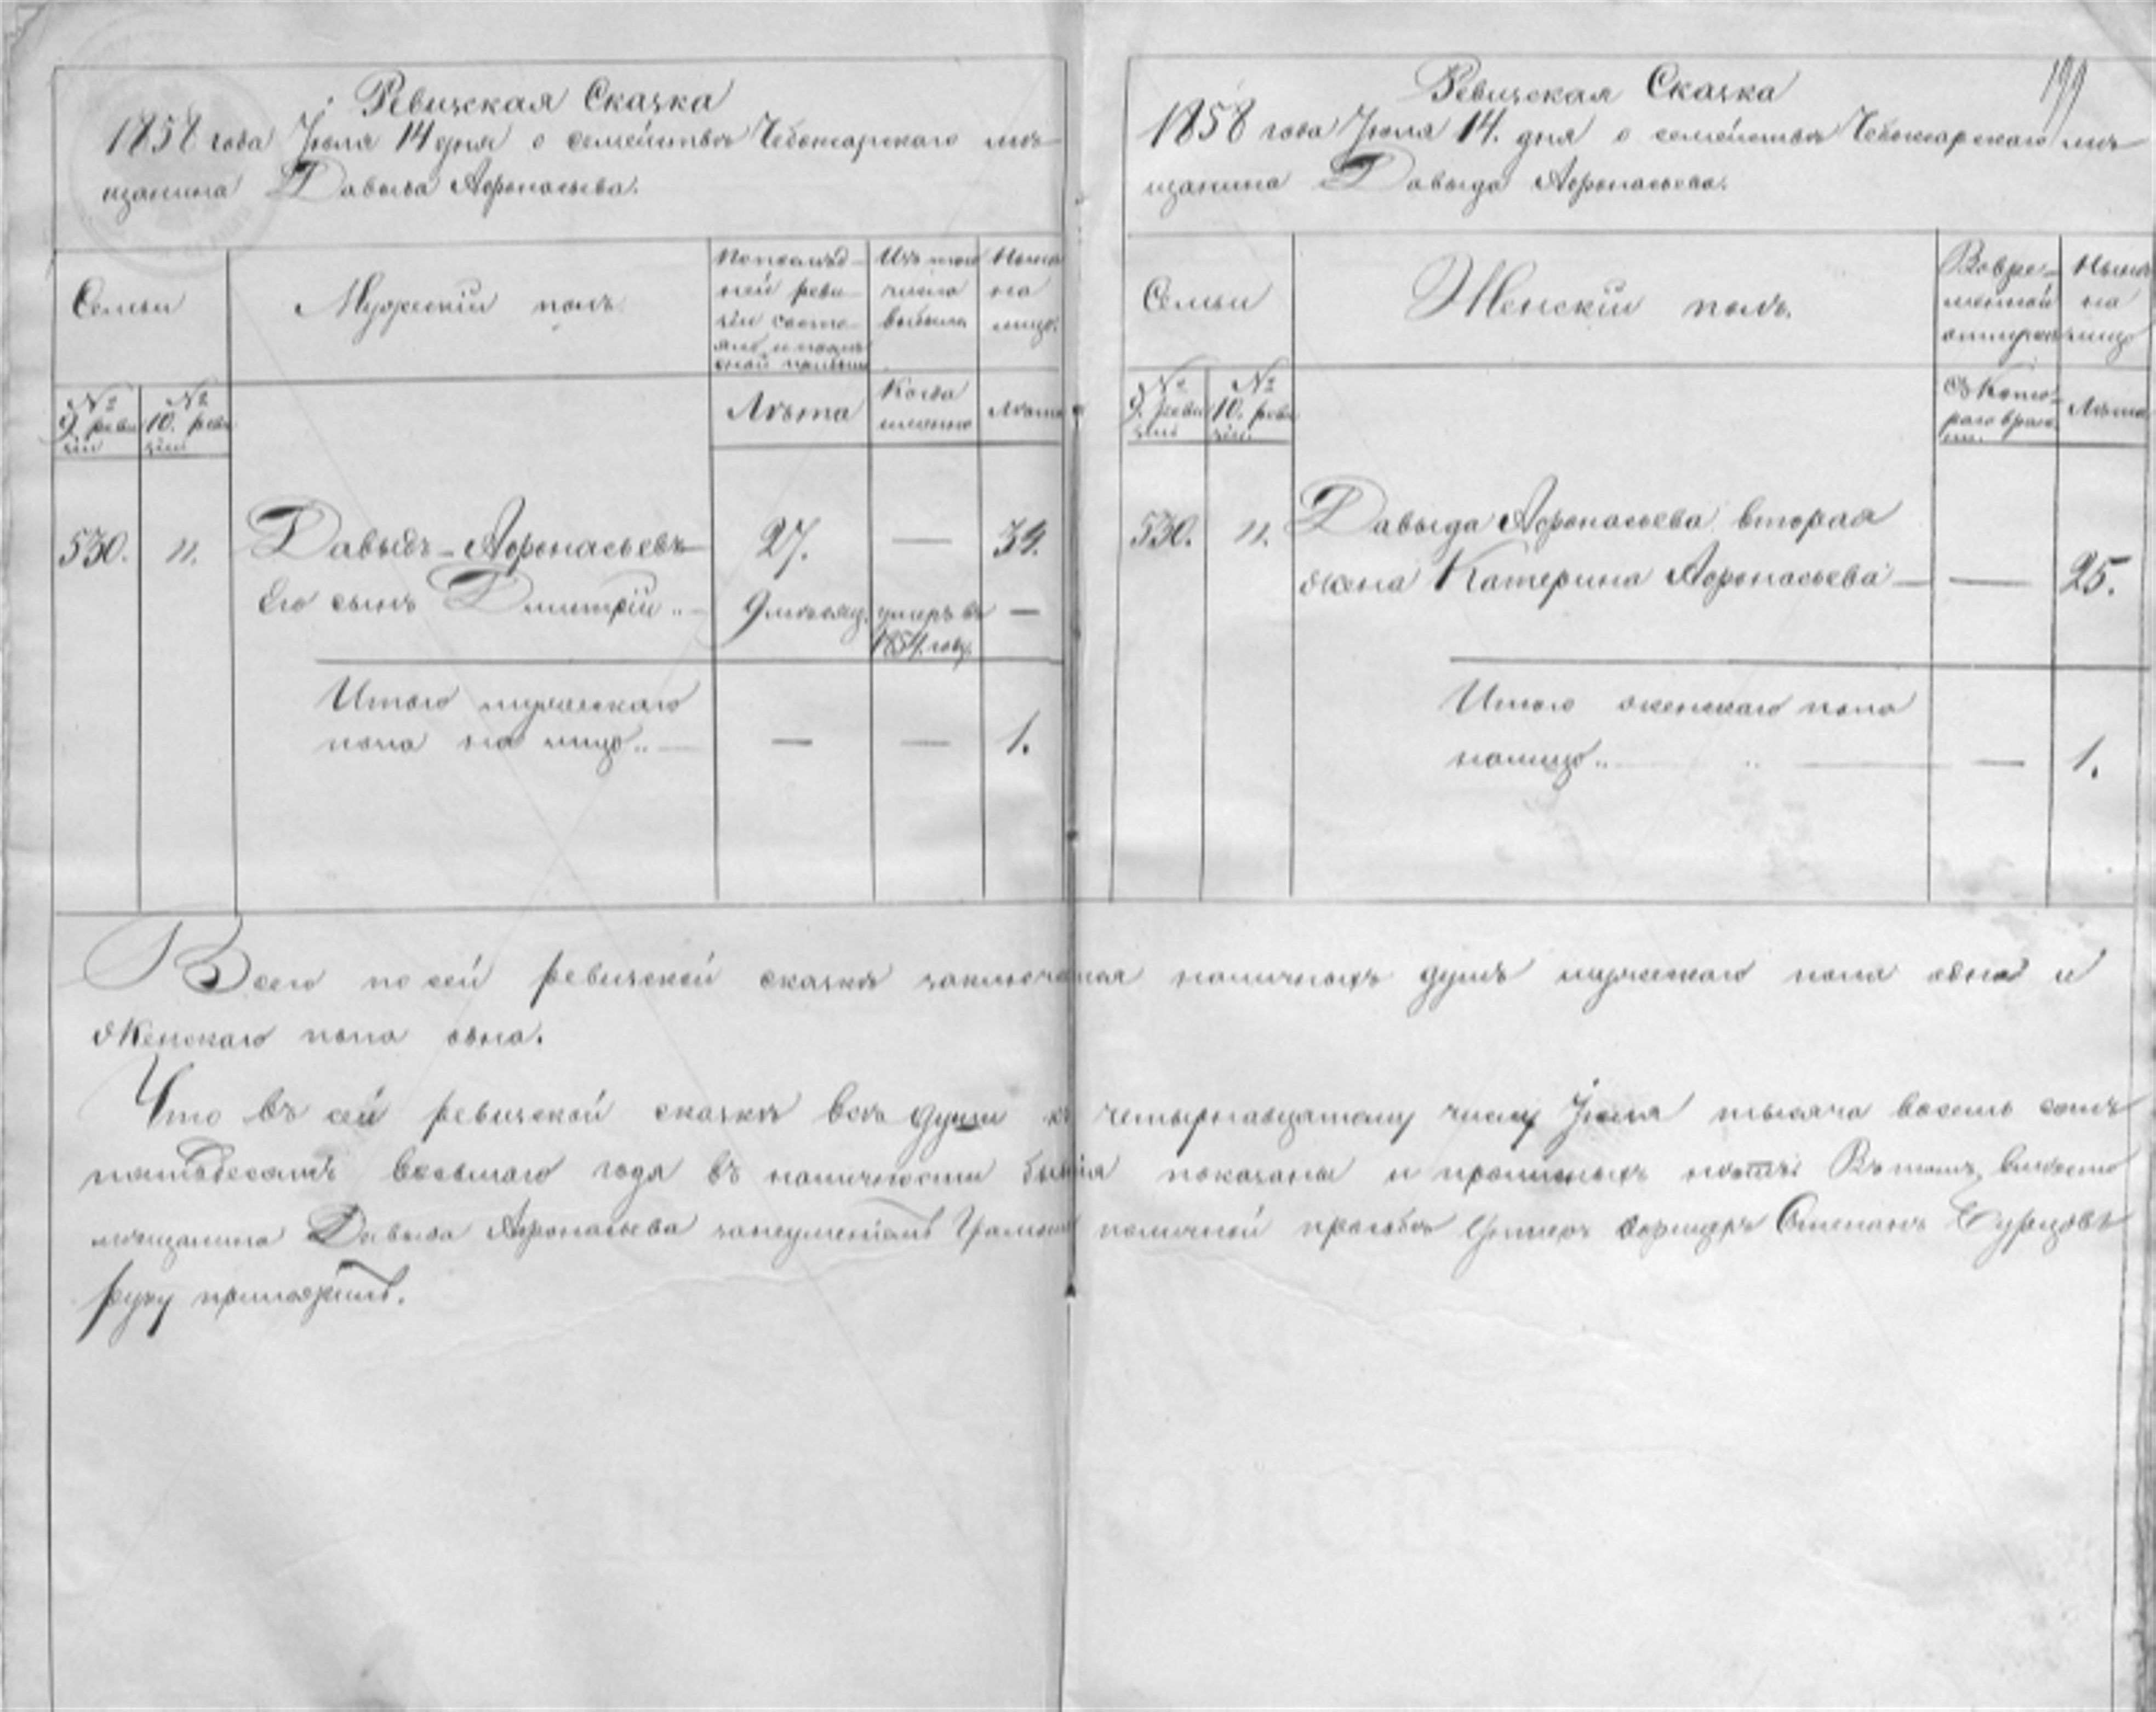 Ревизская Сказка
1858 года Июля 14 дня о семействѣ Чебоксарскаго мѣ-
щанина Давыда Афонасьева.
Семьи
Мужескій полъ.
По послѣд-
ней реви-
зіи состо-
яло и послѣ
оной прибыло
Изъ того
числа
выбыло
Нынѣ
на
лицо.
№ 9. реви
зіи
№ 10. реви
зіи
Лѣта
Когда
именно
Лѣта
530. 11. Давыдъ Афонасьевъ 27. — 34.
Его сынъ Дмитрій .. 9 мѣсяц. умеръ въ —
1854. году.
Итого мужескаго
пола на лицо .. — — — 1.
199
Ревизская Сказка
1858 года Июля 14. дня о семействѣ Чебоксарскаго мѣ-
щанина Давыда Афонасьева.
Семьи
Женскій полъ.
Вовре-
менной
отлучкѣ
Нынѣ
на
лицо
№ 9. реви
зіи
№ 10. реви
зіи
Съ кото-
раго време
ни.
Лѣта
530. 11. Давыда Афонасьева вторая
жена Катерина Афонасьева — — 25.
Итого женскаго пола
налицо .. — .. — — 1.
Всего по сей ревизской сказкѣ заключается наличныхъ душъ мужескаго пола одна и
женскаго пола одна.
Что въ сей ревизской сказкѣ всѣ души къ четырнадцатому числу Июля тысяча восемь сотъ
пятьдесятъ восьмаго года въ наличности бывшія показаны и прописныхъ нѣтъ. Въ томъ вмѣсто
мѣщанина Давыда Афонасьева за неуменіемъ Грамоты поличной прозьбѣ Унтеръ Офицеръ Степанъ
руку приложилъ.